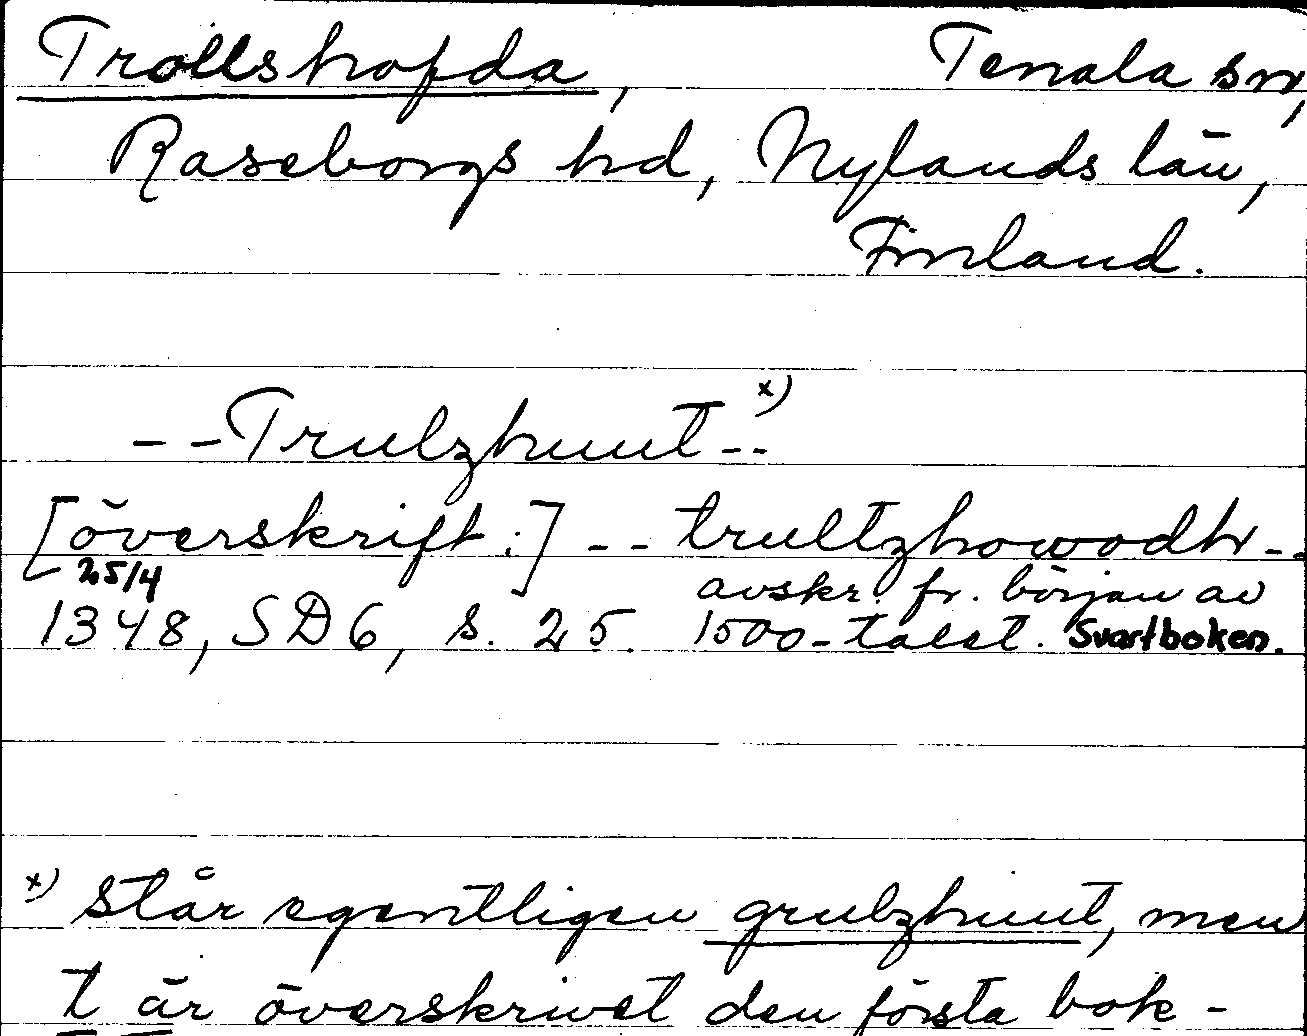 Trollshofda, Tenala sn,
Raseborgs hd, Nylands län,
Finland.
- - Trulzhuut x) - -
[överskrift:] - - trultzhowodh - -
25/4 avskr. fr. början av
1348, SD 6, s. 25. 1500-talet. Svartboken.
x) står egentligen grulzhuut, men
t är överskrivet den första bok-